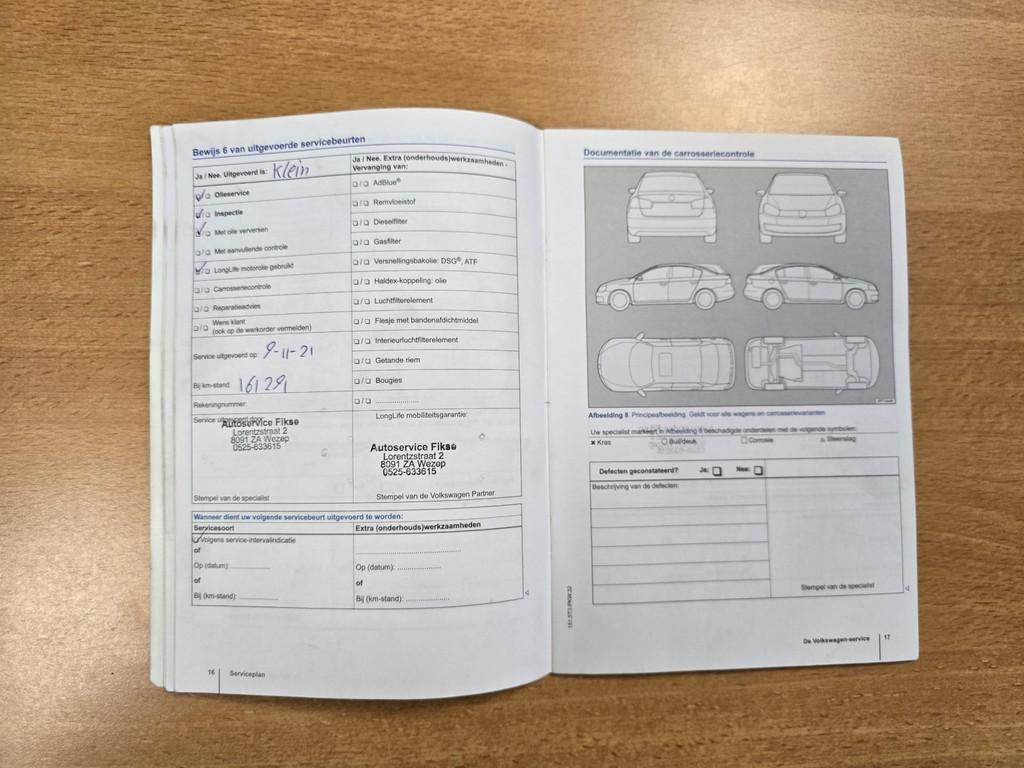 Bewijs 6 van uitgevoerde servicebeurten
Ja / Nee. Uitgevoerd is: Klein
Olieservice
Inspectie
Met olie verversen
Met aanvullende controle
LongLife motorolie gebruikt
Carrosseriecontrole
Reparatieadvies
Wens klant
(ook op de werkorder vermelden)
Service uitgevoerd op: 9-11-21
Bij km-stand: 161291
Rekeningnummer:
Service uitgevoerd door:
Autoservice Fikse
Lorentzstraat 2
8091 ZA Wezep
0525-633615
Stempel van de specialist
Ja / Nee. Extra (onderhouds)werkzaamheden -
Vervanging van:
AdBlue®
Remvloeistof
Dieselfilter
Gasfilter
Versnellingsbakolie: DSG®, ATF
Haldex-koppeling: olie
Luchtfilterelement
Flesje met bandenafdichtmiddel
Interieurluchtfilterelement
Getande riem
Bougies
LongLife mobiliteitsgarantie:
Autoservice Fikse
Lorentzstraat 2
8091 ZA Wezep
0525-633615
Stempel van de Volkswagen Partner
Wanneer dient uw volgende servicebeurt uitgevoerd te worden:
Servicesoort
Volgens service-intervalindicatie
of
Op (datum):
of
Bij (km-stand):
Extra (onderhouds)werkzaamheden
Op (datum):
of
Bij (km-stand):
16 Serviceplan
Documentatie van de carrosseriecontrole
Afbeelding 8 Principeafbeelding. Geldt voor alle wagens en carrosserievarianten
Uw specialist markeert in Afbeelding 8 beschadigde onderdelen met de volgende symbolen:
x Kras Buil/deuk Corrosie Steenslag
Defecten geconstateerd? Ja: Nee:
Beschrijving van de defecten:
Stempel van de specialist
151.5T3.PKW.32
De Volkswagen-service 17